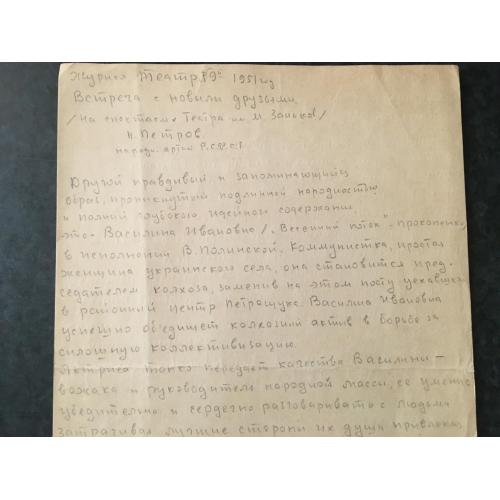 Журнал Театр №9º 1951 год
Встреча с новыми друзьями
/На спектаклях Театра им М. Заньков/
Н. Петров
народн. артист Р.С.Ф.С.Р.
Другой правдивый и запоминающийся
образ, проникнутый подлинной народностью
и полный глубокого идейного содержания,
это - Василина Ивановна /„Весенний поток" - Прокопенко/
в исполнении В. Полинской. Коммунистка, простая
женщина украинского села, она становится пред-
седателем колхоза, заменив на этом посту уехавшего
в районный центр Петращука. Василина Ивановна
успешно объединяет колхозный актив в борьбе за
сплошную коллективизацию.
Актриса тонко передает качества Василины -
вожака и руководителя народной массы, ее умение
убедительно и сердечно разговаривать с людьми
затрагивая лучшие стороны их души привлекая